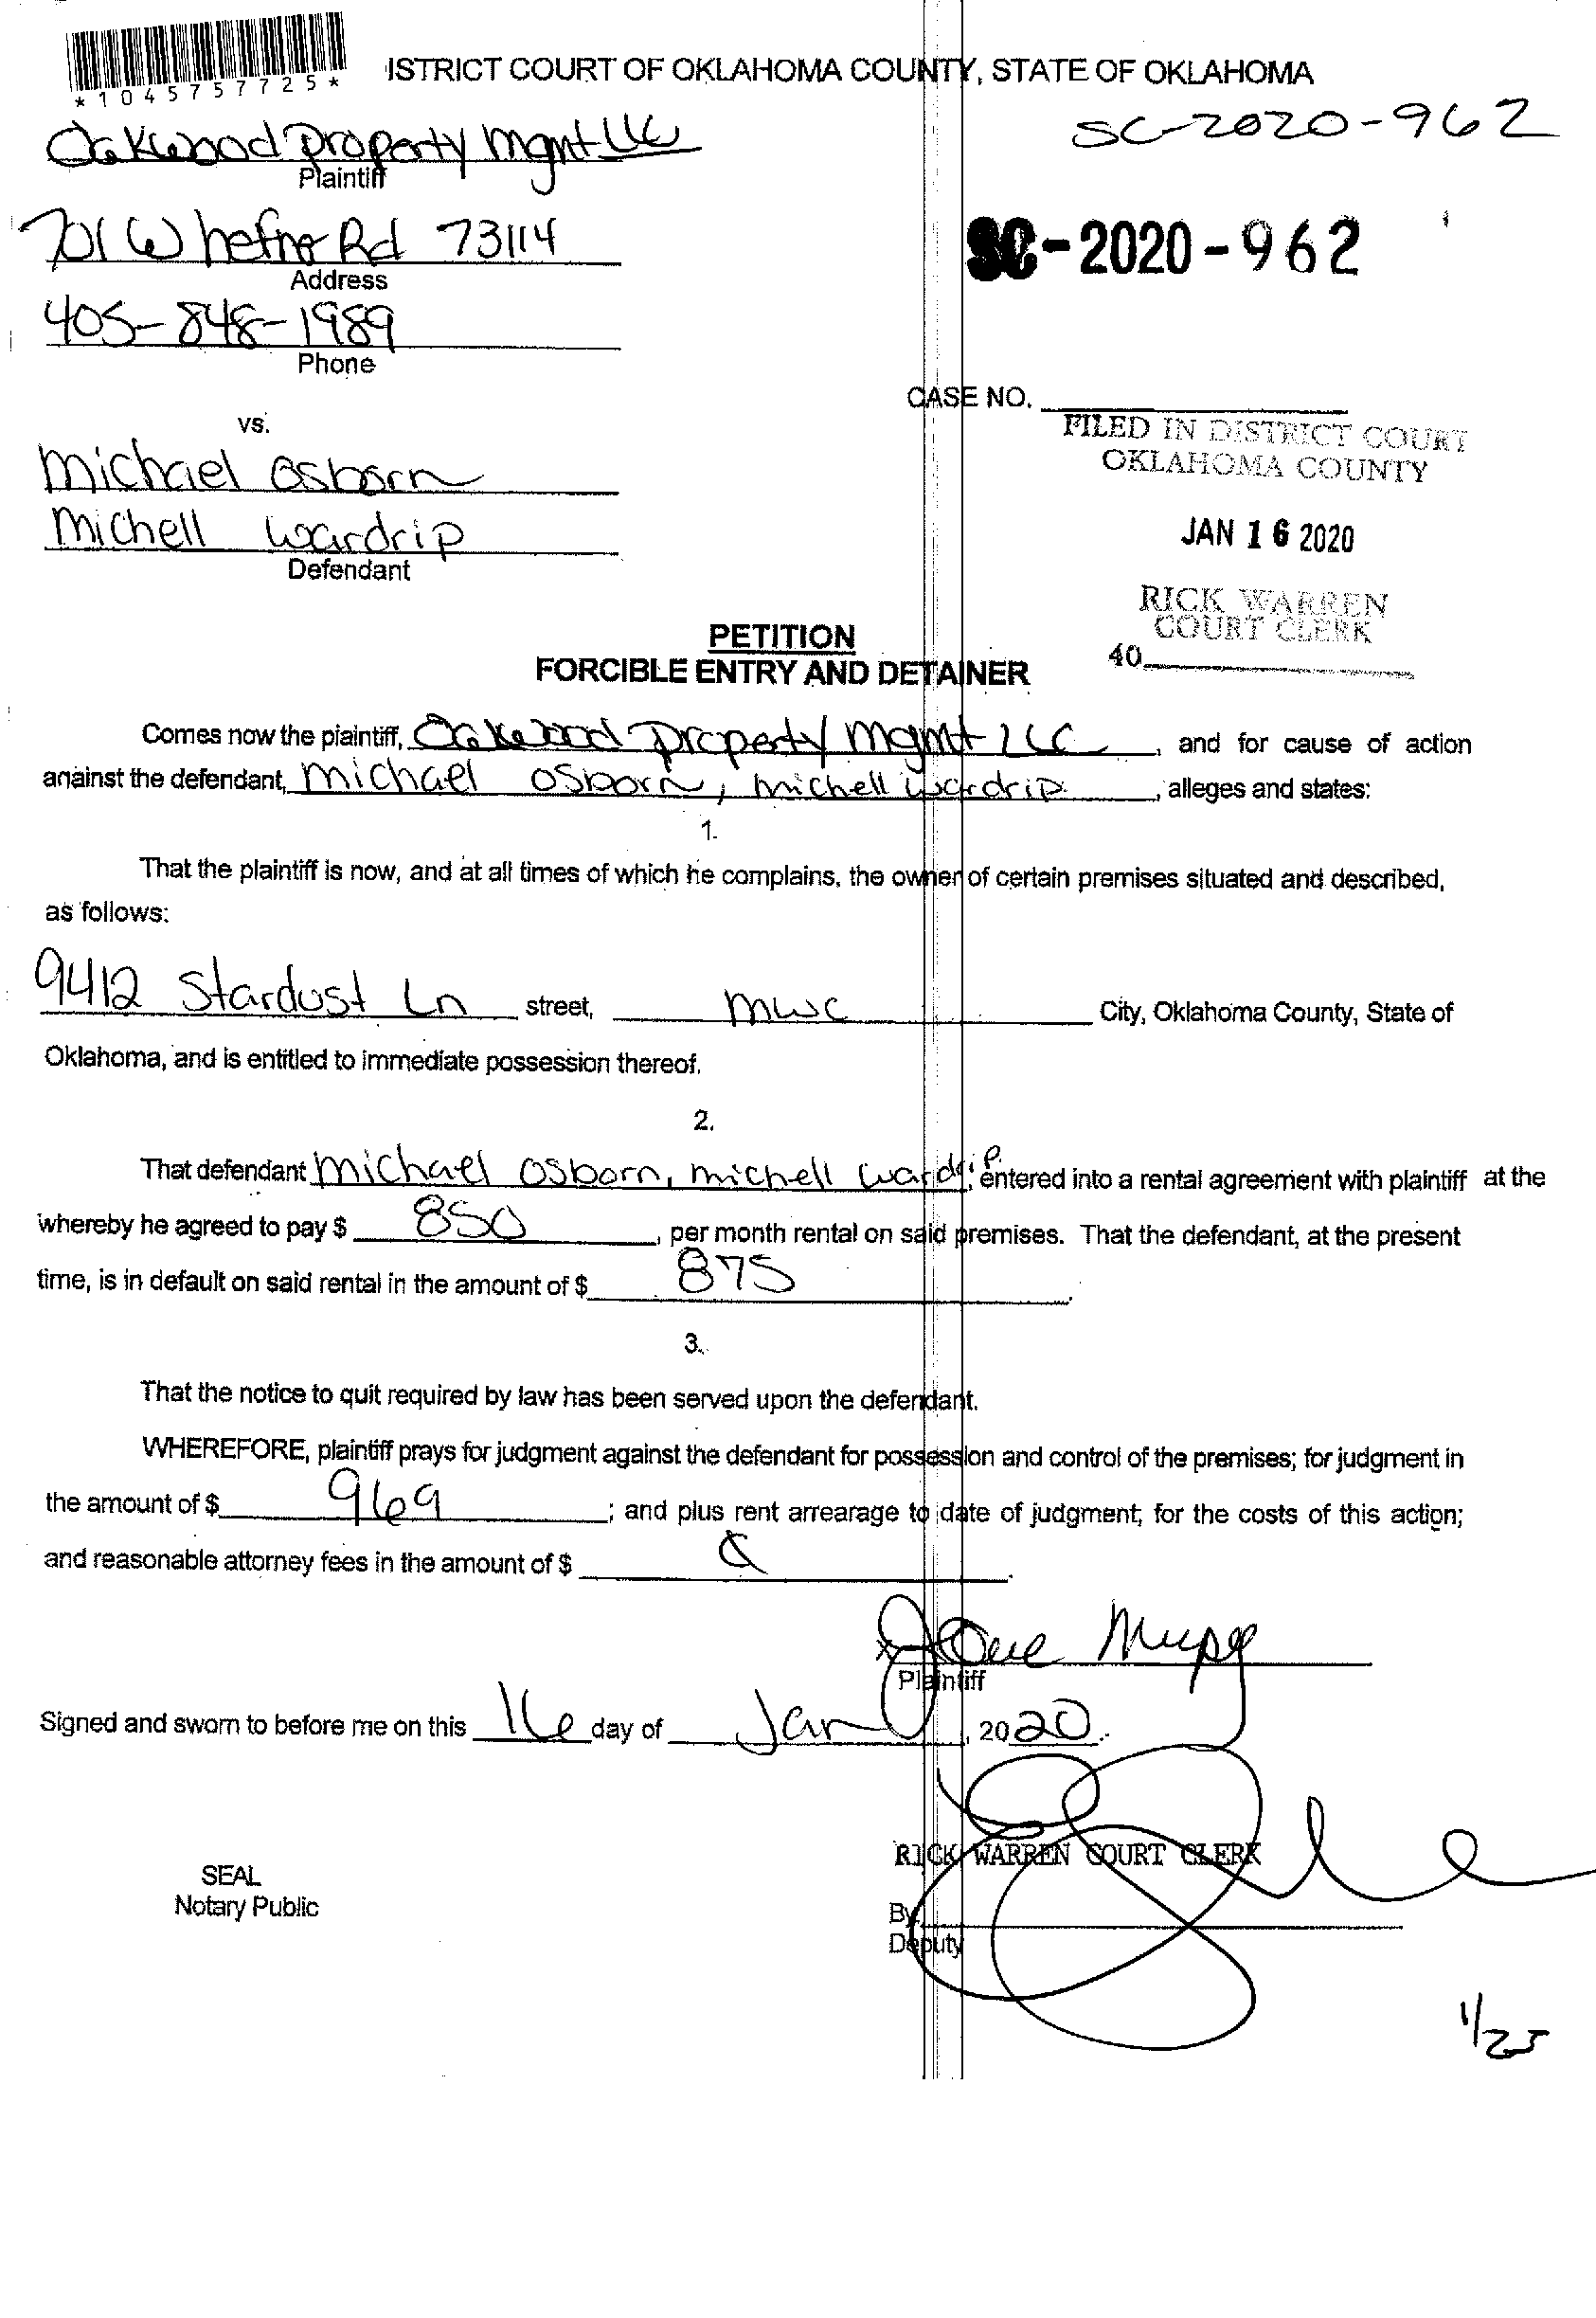 *1045757725*
ISTRICT COURT OF OKLAHOMA COUNTY, STATE OF OKLAHOMA
SC-2020-962
Oakwood Property Mgnt LLC
Plaintiff
701 W hefner Rd 73114
Address
SC-2020-962
405-848-1989
Phone
CASE NO.
vs.
FILED IN DISTRICT COURT
OKLAHOMA COUNTY
Michael Osborn
Michell Wardrip
Defendant
JAN 16 2020
RICK WARREN
COURT CLERK
40
PETITION
FORCIBLE ENTRY AND DETAINER
Comes now the plaintiff, Oakwood Property Mgmt LLC, and for cause of action
against the defendant, Michael Osborn, Michell Wardrip, alleges and states:
1.
That the plaintiff is now, and at all times of which he complains, the owner of certain premises situated and described,
as follows:
9412 Stardust Ln street, MWC City, Oklahoma County, State of
Oklahoma, and is entitled to immediate possession thereof.
2.
That defendant Michael Osborn, Michell Wardrip, entered into a rental agreement with plaintiff at the
whereby he agreed to pay $ 850, per month rental on said premises. That the defendant, at the present
time, is in default on said rental in the amount of $ 875.
3.
That the notice to quit required by law has been served upon the defendant.
WHEREFORE, plaintiff prays for judgment against the defendant for possession and control of the premises; for judgment in
the amount of $ 969; and plus rent arrearage to date of judgment; for the costs of this action;
and reasonable attorney fees in the amount of $
Plaintiff
Signed and sworn to before me on this 16 day of Jan, 2020.
RICK WARREN COURT CLERK
SEAL
Notary Public
By
Deputy
1/25